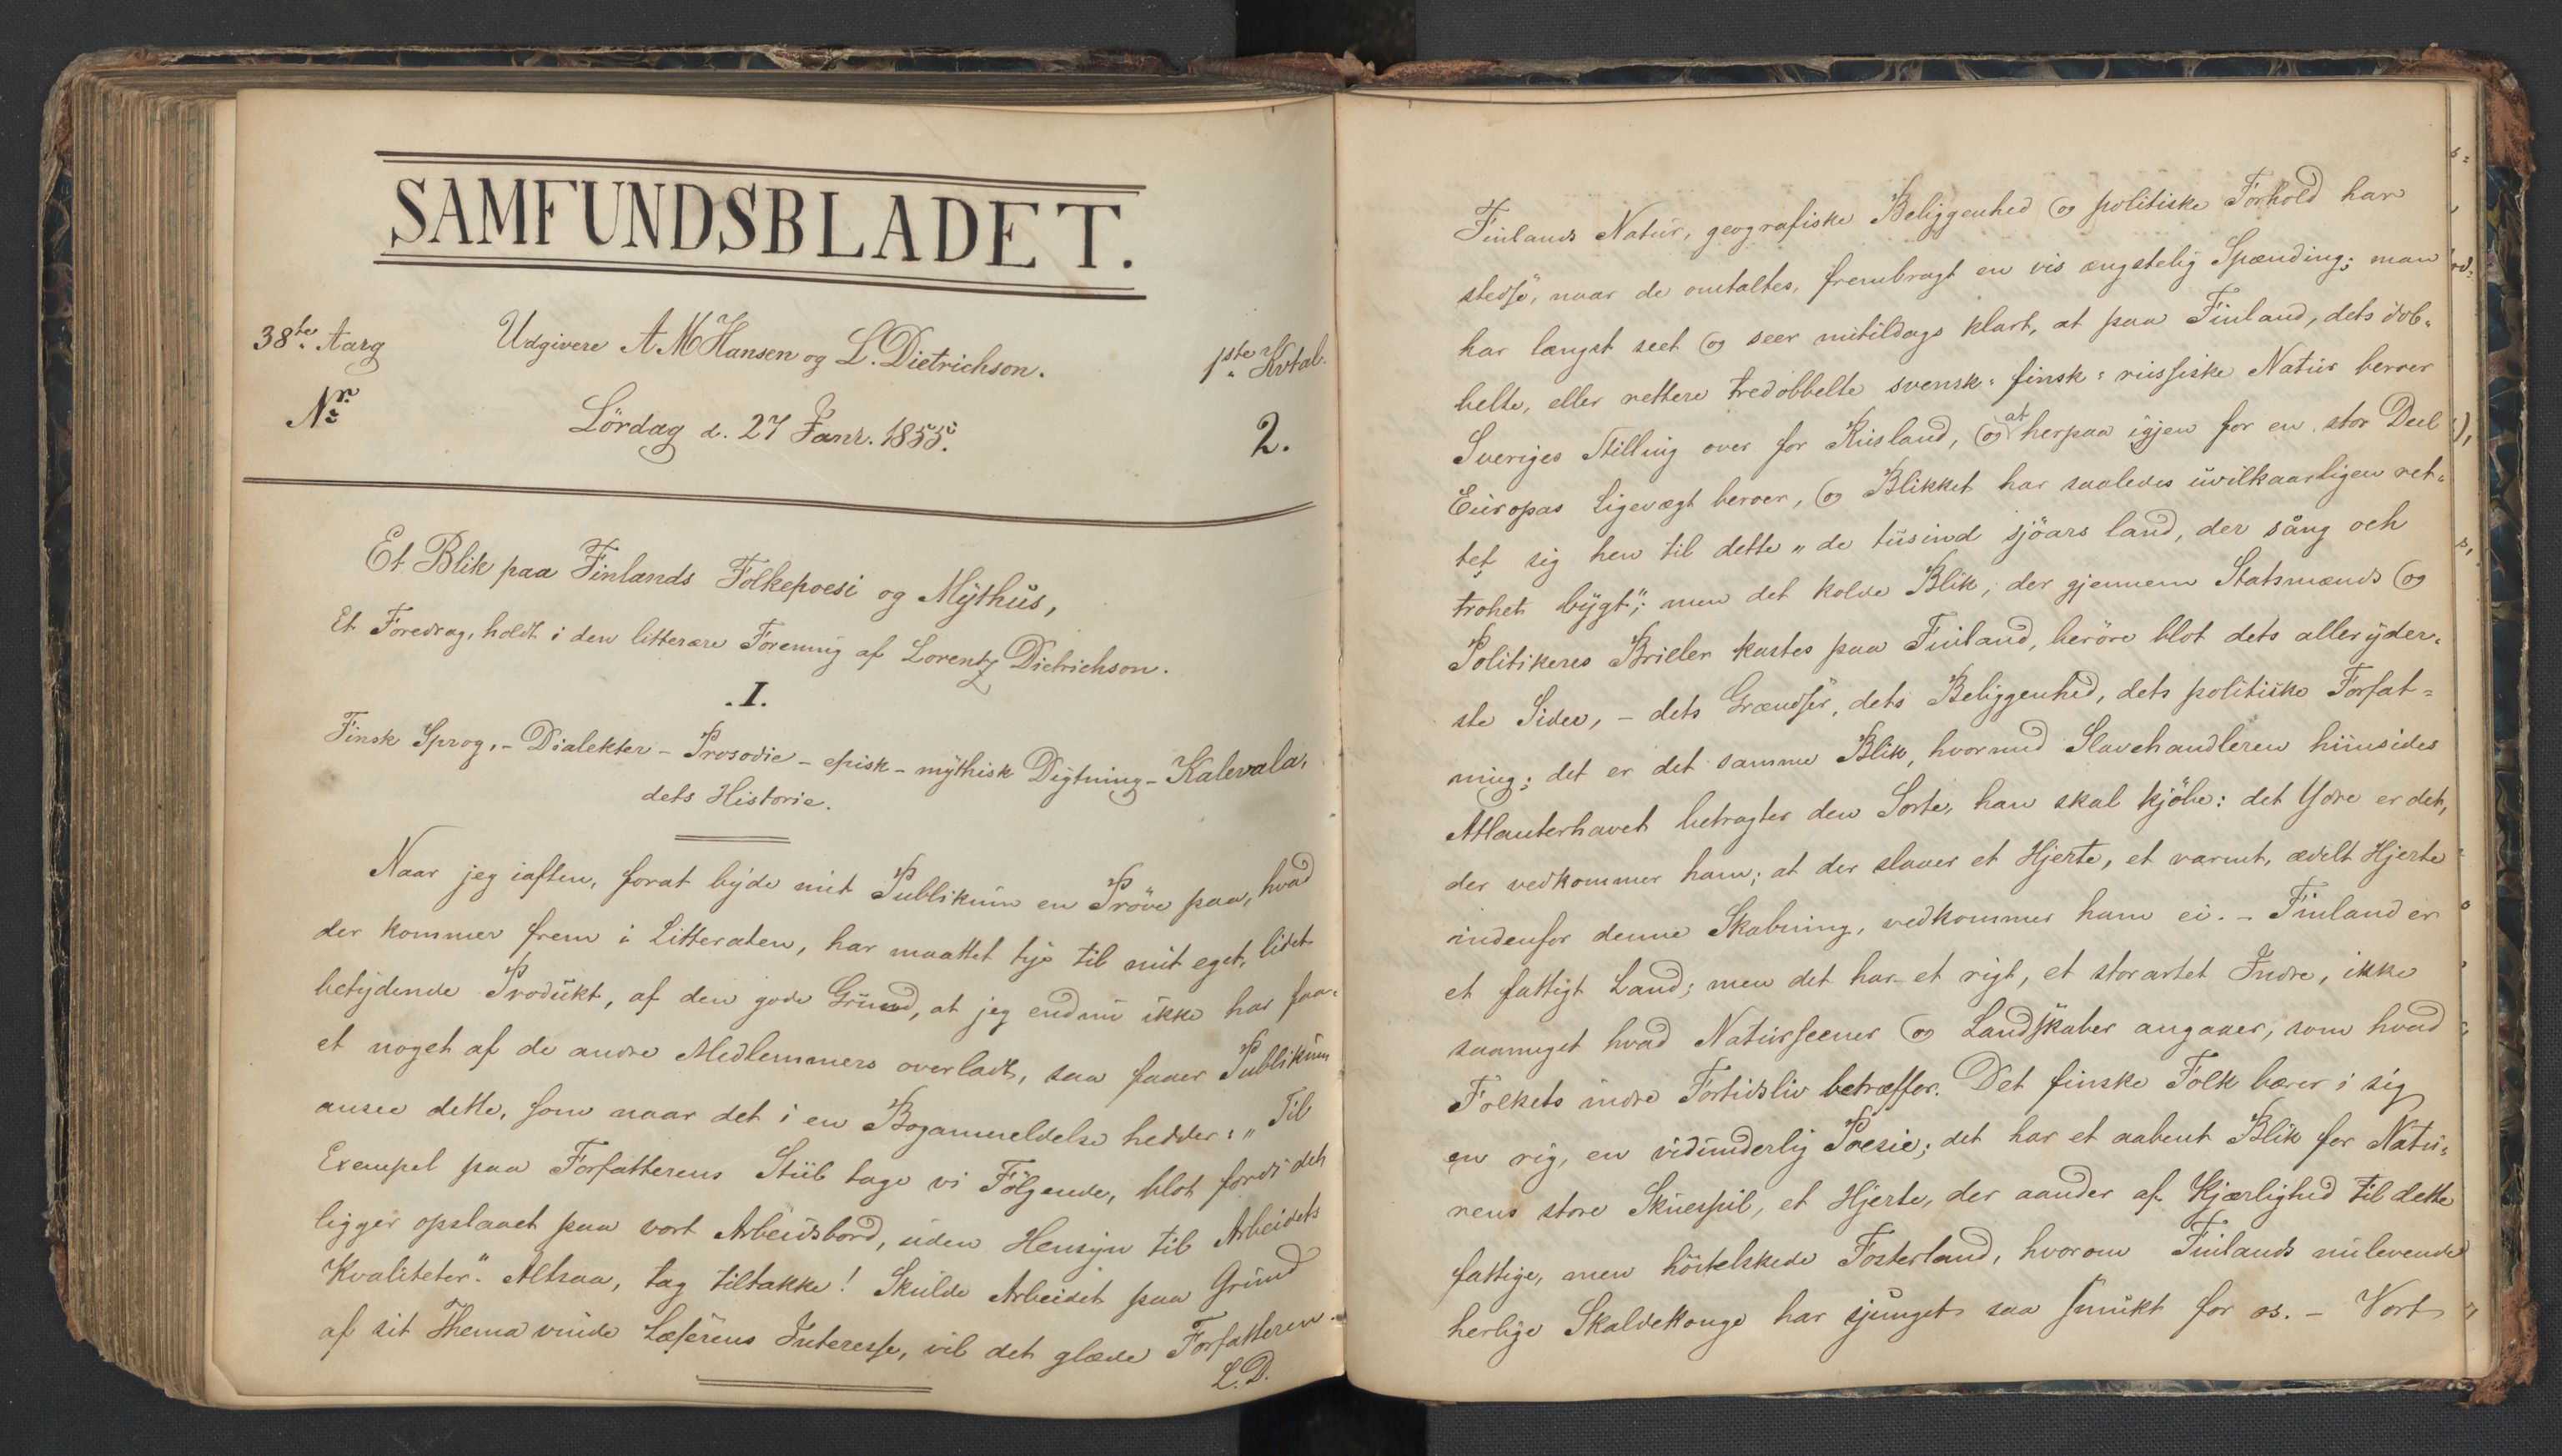 SAMFUNDSBLADET.
38te Aarg
Udgivere A M Hansen og L. Dietrichson.
1ste Kvtal.
Nr.
Lördag d. 27 Janr. 1855.
2.
Et Blik paa Finlands Folkepoesi og Mythus,
Et Foredrag, holdt i den litterære Forening af Lorentz Dietrichson.
.I.
Finsk Sprog, - Dialekter - Prosodie - episk - mythisk Digtning - Kalevala,
dets Historie.
Naar jeg iaften, forat byde mit Publikum en Pröve paa, hvad
der kommer frem i Litteraten, har maattet tye til mit eget, lidet
betydende Produkt, af den gode Grund, at jeg endnu ikke har faa-
et noget af de andre Medlemmers overladt, saa faaer Publikum
ansee dette, som naar det i en Boganmeldelse hedder: „Til
Exempel paa Forfatterens Stiil tage vi Fölgende, blot fordi det
ligger opslaaet paa vort Arbeidsbord, uden Hensyn til Arbeidets
Kvaliteter." Altsaa, tag tiltakke! Skulde Arbeidet paa Grund
af sit Thema vinde Læserens Interesse, vil det glæde Forfatteren.
L.D.
Finlands Natur, geografiske Beliggenhed og politiske Forhold har
stedse, naar de omtaltes, frembragt en vis ængstelig Spænding; man
har længst seet og seer nutildags klart, at paa Finland, dets dob-
belte, eller rettere tredobbelte svensk-finsk-russiske Natur beroer
Sveriges Stilling over for Rusland, og at herpaa igjen for en stor Deel
Europas Ligevægt beroer, og Blikket har saaledes uvilkaarligen ret-
tet sig hen til dette „de tusind sjöars land, der sång och
trohet bygt"; men det kolde Blik, der gjennem Statsmænds og
Politikeres Briller kastes paa Finland, beröre blot dets alleryder-
ste Sider, - dets Grændser, dets Beliggenhed, dets politiske Forfat-
ning; det er det samme Blik, hvormed Slavehandleren hiinsides
Atlanterhavet betragter den Sorte, han skal kjöbe: det Ydre er det,
der vedkommer ham; at der slaaer et Hjerte, et varmt, ædelt Hjerte
indenfor denne Skabning, vedkommer ham ei. - Finland er
et fattigt Land; men det har et rigt, et storartet Indre, ikke
saameget hvad Naturscener og Landskaber angaaer, som hvad
Folkets indre Fortidsliv betræffer. Det finske Folk bærer i sig
en rig, en vidunderlig Poesie; det har et aabent Blik for Natu-
rens store Skuespil, et Hjerte, der aander af Kjærlighed til dette
fattige, men höitelskede Fosterland, hvorom Finlands nulevende
herlige Skaldekonge har sjunget saa smukt for os. - Vort